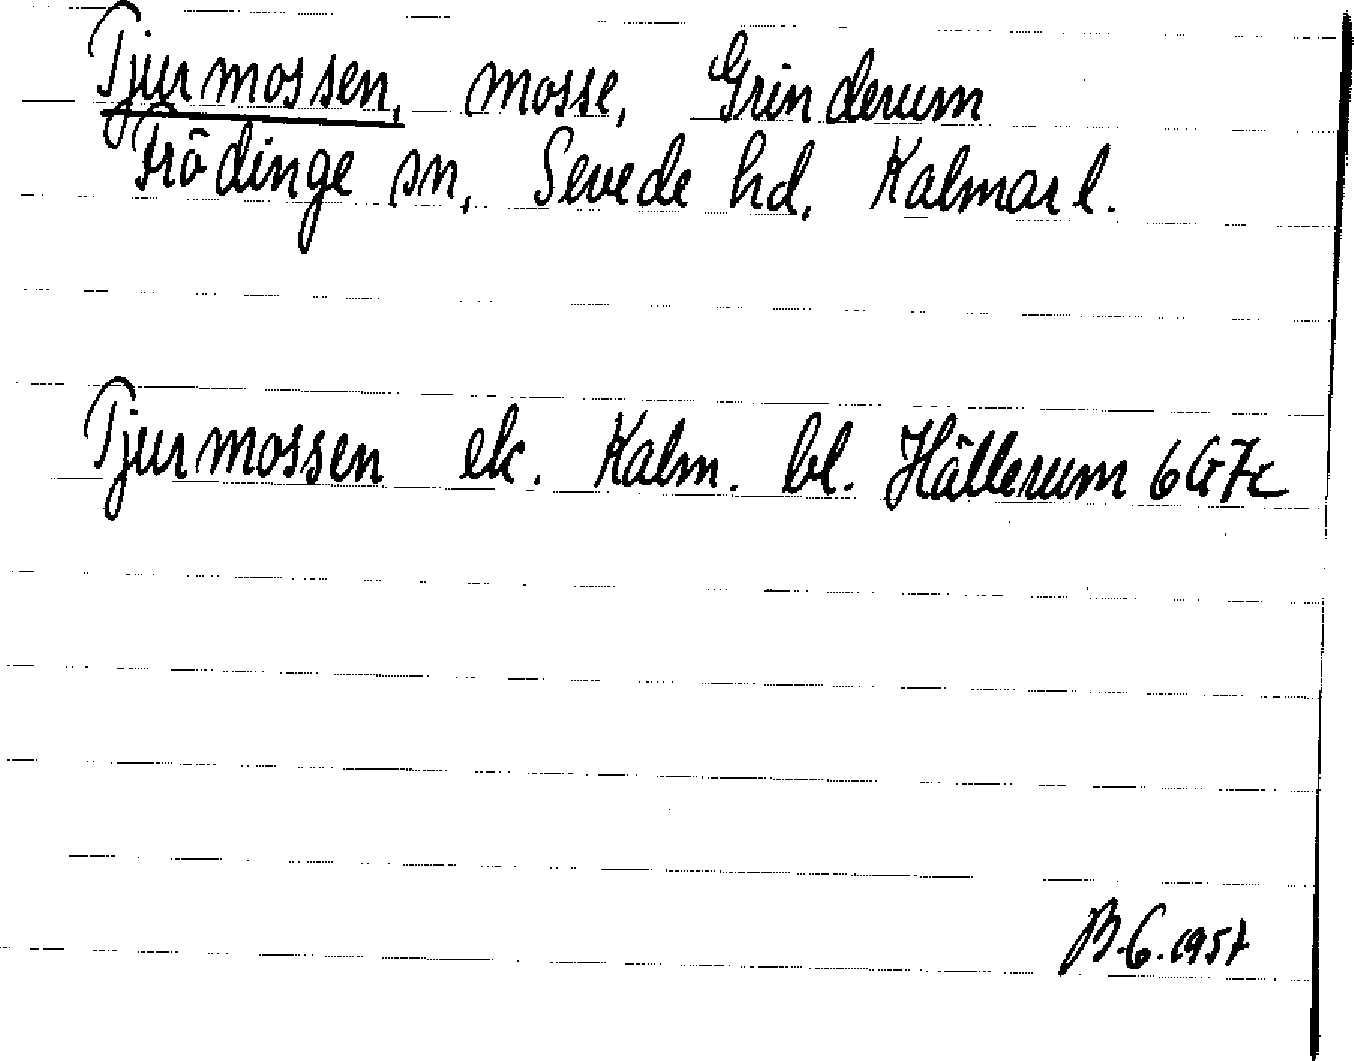 Tjurmossen, mosse, Grinderum
Frödinge sn, Sevede hd, Kalmar l.
Tjurmossen ek. Kalm. bl. Hällerum 6G7c
B.G. 1957